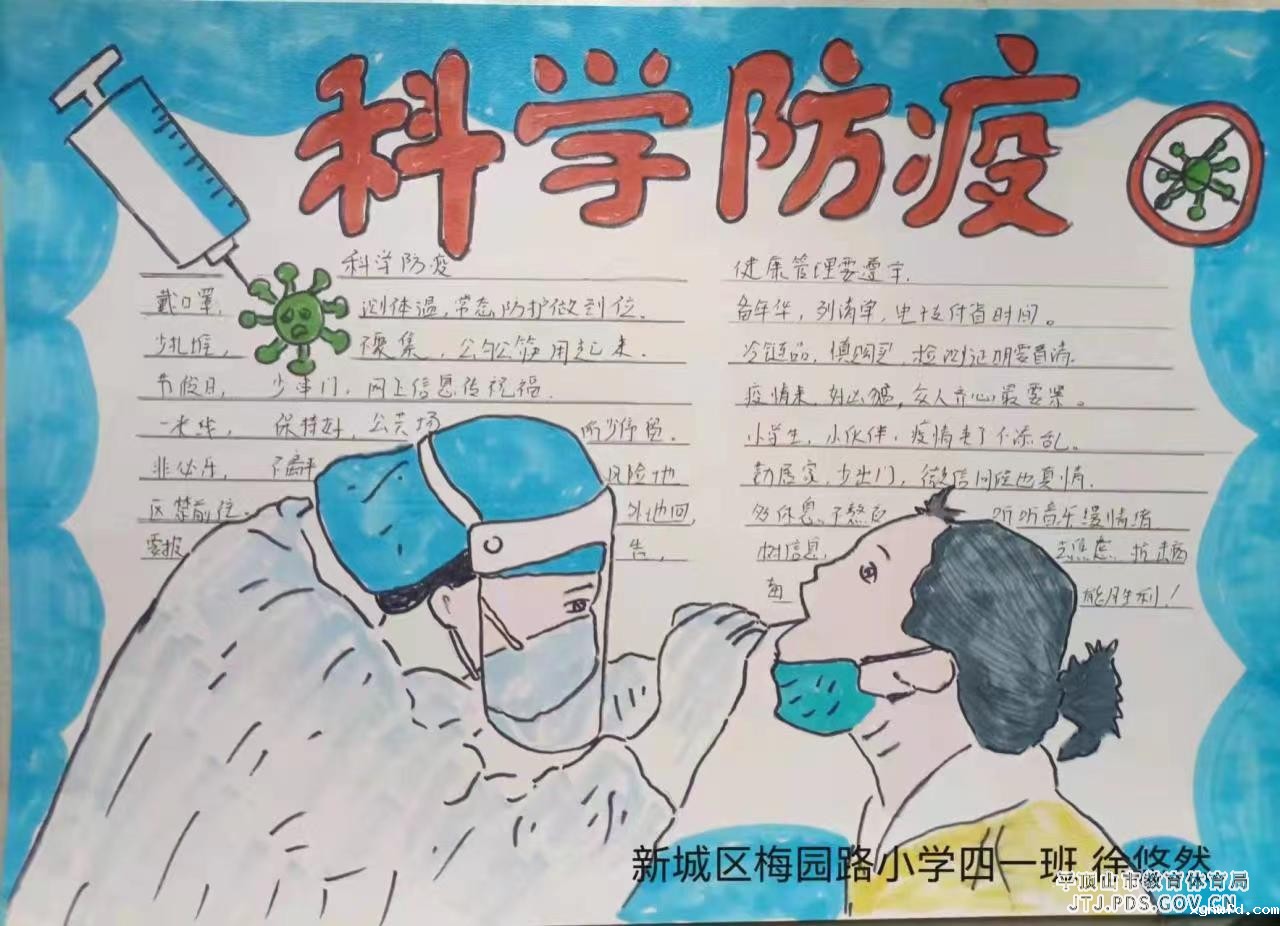 科学防疫
科学防疫
戴口罩, 测体温,常态防护做到位.
少扎堆, 不聚集,公勺公筷用起来.
节假日, 少串门,网上信息传祝福.
一米线, 保持好,公共场所少停留.
非必乐, 不离平 风险地
区禁前往。 外地回,
要报 告,
健康管理要遵守.
备年华,列清单,电子支付省时间。
冷链品,慎购买,检测证明要看清.
疫情来,别凶猫,众人齐心最要紧。
小学生,小伙伴,疫情来了不添乱。
勤居家,少出门,微信问候也真情.
多休息,不熬夜 听听音乐缓情绪
树信息, 去焦虑.抗击病
毒 能胜利!
新城区梅园路小学四一班 徐悠然
平顶山市教育体育局
JTJ.PDS.GOV.CN